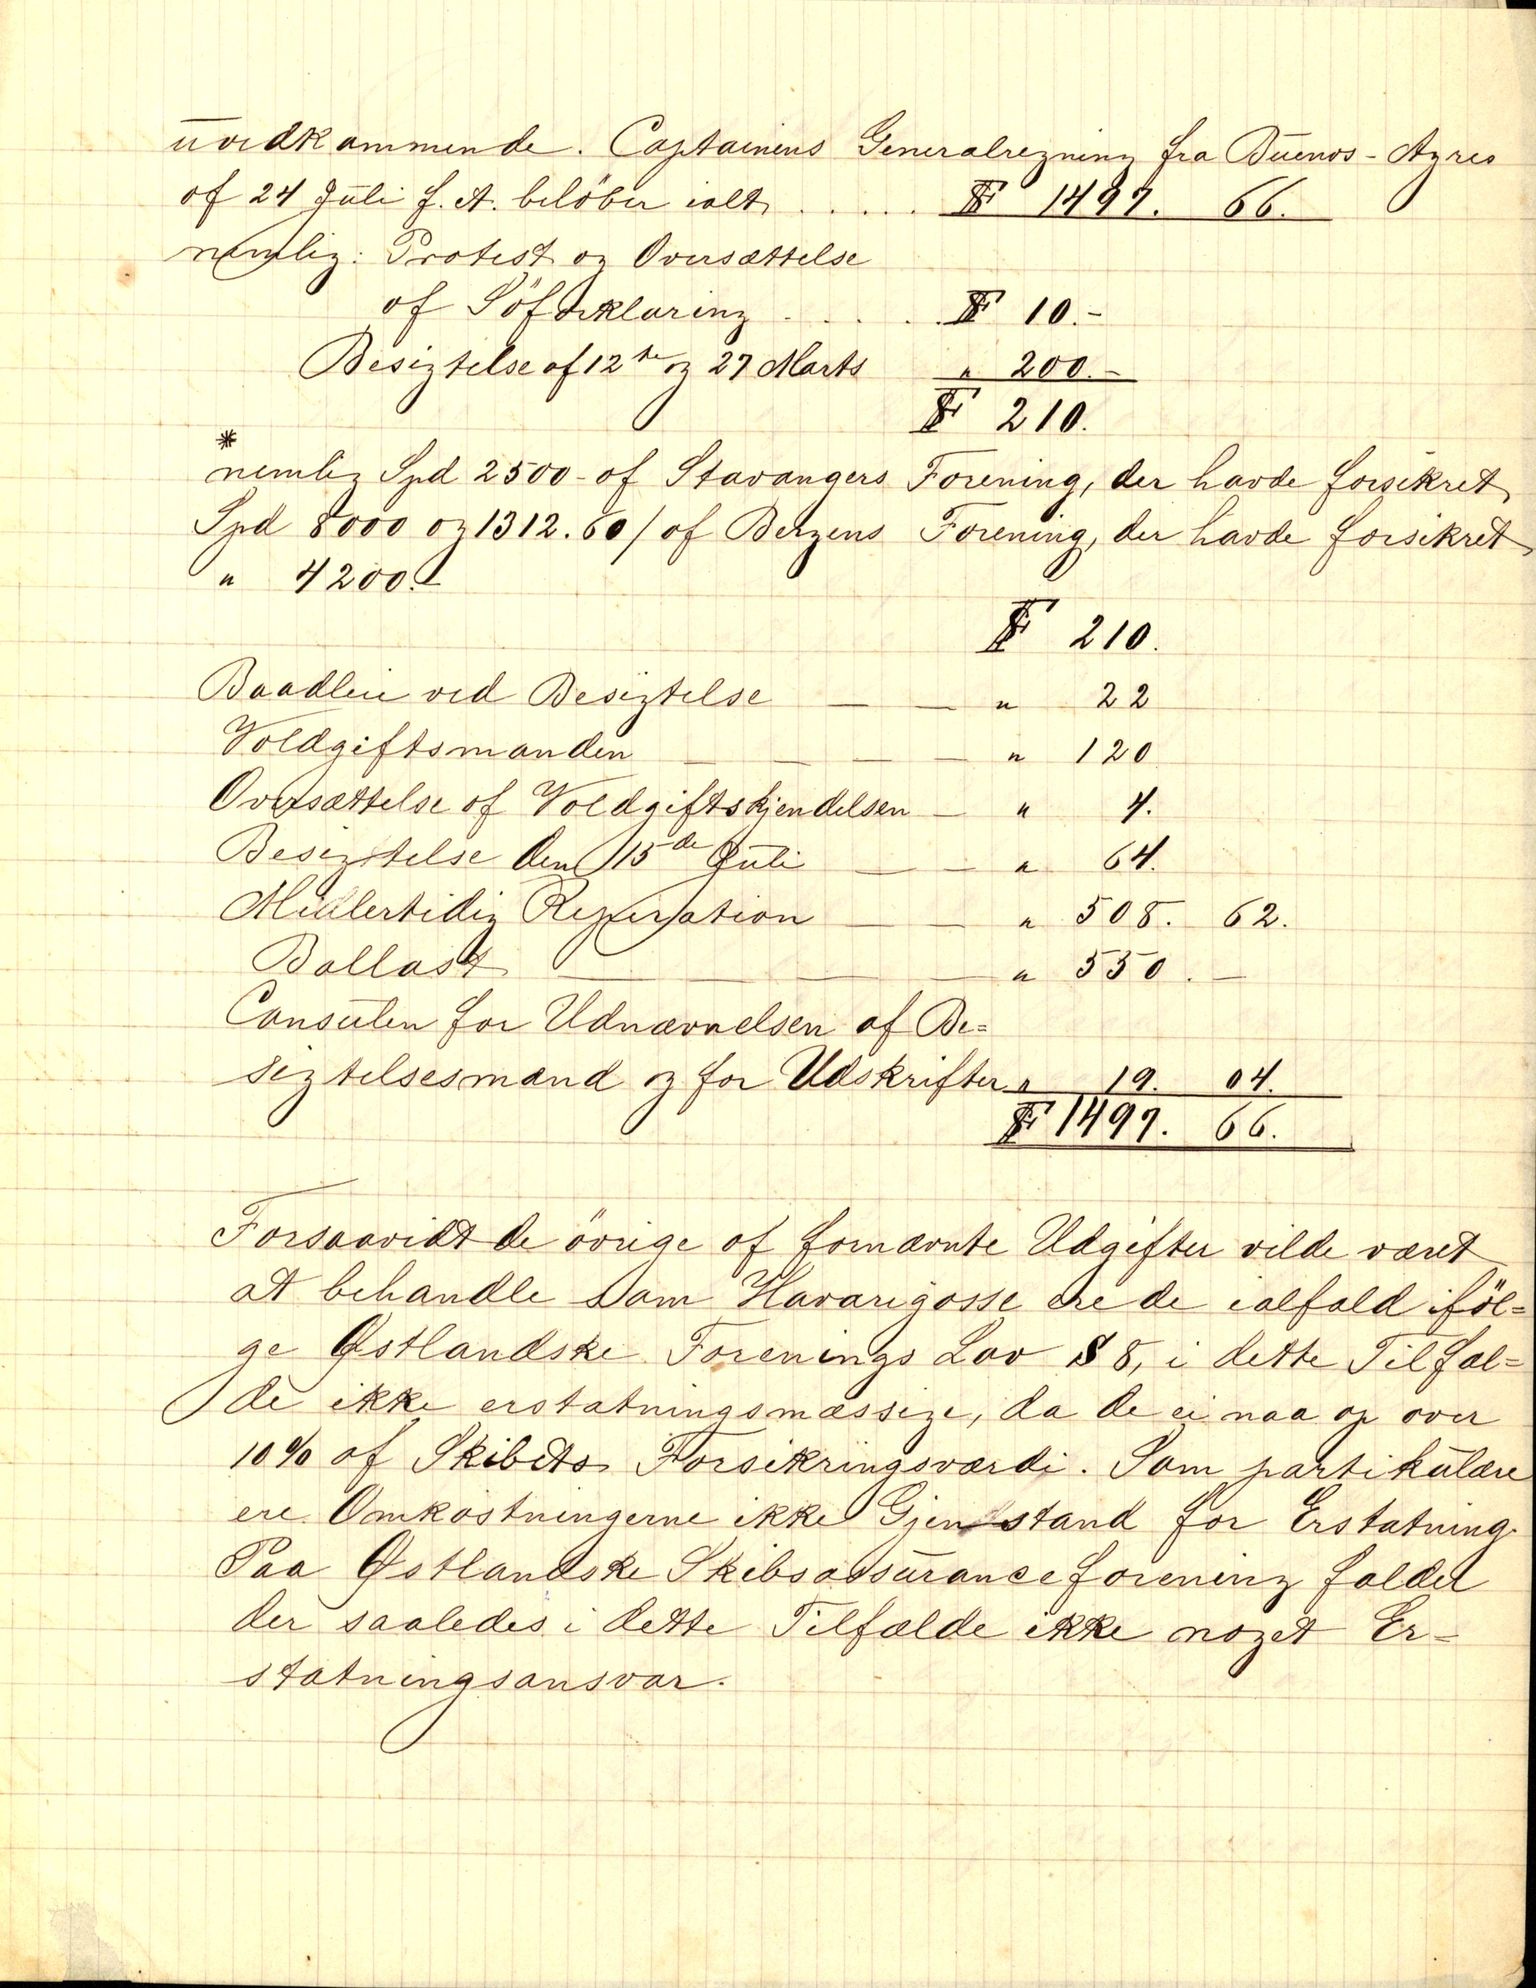 uvedkommende. Captainens Generalregning fra Buenos-Ayres
af 24 Juli f. A. beløber ialt ..... 1497. 66.
nemlig: Protest og Oversættelse
af Söforklaring ..... 10.-
Besigtelse af 12te og 27 Marts " 200.-
210.
*
nemlig Spd 2500- af Stavangers Forening, der havde forsikret
Spd 8000 og 1312.60/ af Bergens Forening, der havde forsikret
" 4200.-
210.
Baadleie ved Besigtelse — — " 22
Voldgiftsmanden — — — — " 120
Oversættelse af Voldgiftskjendelsen — " 4.
Besigtelse den 15de Juli — — " 64.
Midlertidig Reperation — — " 508. 62.
Ballast — — — " 550. —
Consulen for Udnævnelsen af Be=
sigtelsesmænd og for Udskrifter " 19. 04.
1497. 66.
Forsaavidt de övrige af fornævnte Udgifter vilde været
at behandle som Havarigosse ere de ialfald iföl=
ge Østlandske Forenings Lov § 8, i dette Tilfæl=
de ikke erstatningsmæssige, da de ei naa op over
10% af Skibets Forsikringsværdi. Som partikulære
ere Omkostningerne ikke Gjenstand for Erstatning.
Paa Østlandske Skibsassuranceforening falder
der saaledes i dette Tilfælde ikke noget Er=
statningsansvar.